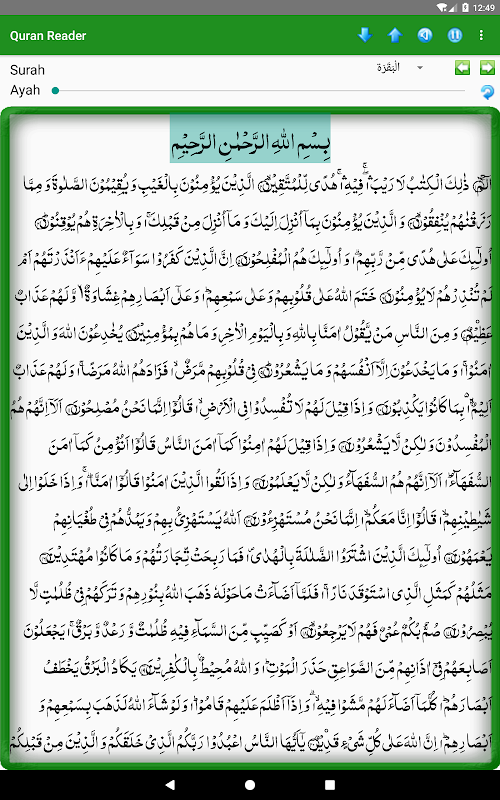 12:49
Quran Reader
Surah
الْبَقَرَة
Ayah
بِسْمِ اللهِ الرَّحْمٰنِ الرَّحِيْمِ
الٓمّٓ ۚ ذٰلِكَ الْكِتٰبُ لَا رَيْبَ ۛ ۖ فِيْهِ ۛ ۚ هُدًى لِّلْمُتَّقِيْنَ ۙ الَّذِيْنَ يُؤْمِنُوْنَ بِالْغَيْبِ وَ يُقِيْمُوْنَ الصَّلٰوةَ وَ مِمَّا
رَزَقْنٰهُمْ يُنْفِقُوْنَ ۙ وَ الَّذِيْنَ يُؤْمِنُوْنَ بِمَاۤ اُنْزِلَ اِلَيْكَ وَ مَاۤ اُنْزِلَ مِنْ قَبْلِكَ ۚ وَ بِالْاٰخِرَةِ هُمْ يُوْقِنُوْنَ ؕ
اُولٰٓئِكَ عَلٰى هُدًى مِّنْ رَّبِّهِمْ ۗ وَ اُولٰٓئِكَ هُمُ الْمُفْلِحُوْنَ اِنَّ الَّذِيْنَ كَفَرُوْا سَوَآءٌ عَلَيْهِمْ ءَاَنْذَرْتَهُمْ اَمْ
لَمْ تُنْذِرْهُمْ لَا يُؤْمِنُوْنَ خَتَمَ اللهُ عَلٰى قُلُوْبِهِمْ وَ عَلٰى سَمْعِهِمْ ؕ وَ عَلٰۤى اَبْصَارِهِمْ غِشَاوَةٌ ؗ وَّ لَهُمْ عَذَابٌ
عَظِيْمٌ وَ مِنَ النَّاسِ مَنْ يَّقُوْلُ اٰمَنَّا بِاللهِ وَ بِالْيَوْمِ الْاٰخِرِ وَ مَا هُمْ بِمُؤْمِنِيْنَ ۘ يُخٰدِعُوْنَ اللهَ وَ الَّذِيْنَ
اٰمَنُوْا ۚ وَ مَا يَخْدَعُوْنَ اِلَّاۤ اَنْفُسَهُمْ وَ مَا يَشْعُرُوْنَ ؕ فِيْ قُلُوْبِهِمْ مَّرَضٌ ۙ فَزَادَهُمُ اللهُ مَرَضًا ۚ وَ لَهُمْ عَذَابٌ
اَلِيْمٌۢ ۙ بِمَا كَانُوْا يَكْذِبُوْنَ وَ اِذَا قِيْلَ لَهُمْ لَا تُفْسِدُوْا فِي الْاَرْضِ ۙ قَالُوْۤا اِنَّمَا نَحْنُ مُصْلِحُوْنَ اَلَاۤ اِنَّهُمْ هُمُ
الْمُفْسِدُوْنَ وَ لٰكِنْ لَّا يَشْعُرُوْنَ وَ اِذَا قِيْلَ لَهُمْ اٰمِنُوْا كَمَاۤ اٰمَنَ النَّاسُ قَالُوْۤا اَنُؤْمِنُ كَمَاۤ اٰمَنَ
السُّفَهَآءُ ؕ اَلَاۤ اِنَّهُمْ هُمُ السُّفَهَآءُ وَ لٰكِنْ لَّا يَعْلَمُوْنَ وَ اِذَا لَقُوا الَّذِيْنَ اٰمَنُوْا قَالُوْۤا اٰمَنَّا ۖۚ وَ اِذَا خَلَوْا اِلٰى
شَيٰطِيْنِهِمْ ۙ قَالُوْۤا اِنَّا مَعَكُمْ ۙ اِنَّمَا نَحْنُ مُسْتَهْزِءُوْنَ اَللهُ يَسْتَهْزِئُ بِهِمْ وَ يَمُدُّهُمْ فِيْ طُغْيَانِهِمْ
يَعْمَهُوْنَ اُولٰٓئِكَ الَّذِيْنَ اشْتَرَوُا الضَّلٰلَةَ بِالْهُدٰى ۪ فَمَا رَبِحَتْ تِّجَارَتُهُمْ وَ مَا كَانُوْا مُهْتَدِيْنَ
مَثَلُهُمْ كَمَثَلِ الَّذِي اسْتَوْقَدَ نَارًا ۚ فَلَمَّاۤ اَضَآءَتْ مَا حَوْلَهٗ ذَهَبَ اللهُ بِنُوْرِهِمْ وَ تَرَكَهُمْ فِيْ ظُلُمٰتٍ لَّا
يُبْصِرُوْنَ صُمٌّۢ بُكْمٌ عُمْيٌ فَهُمْ لَا يَرْجِعُوْنَ ۙ اَوْ كَصَيِّبٍ مِّنَ السَّمَآءِ فِيْهِ ظُلُمٰتٌ وَّ رَعْدٌ وَّ بَرْقٌ ۚ يَجْعَلُوْنَ
اَصَابِعَهُمْ فِيْۤ اٰذَانِهِمْ مِّنَ الصَّوَاعِقِ حَذَرَ الْمَوْتِ ؕ وَ اللهُ مُحِيْطٌۢ بِالْكٰفِرِيْنَ يَكَادُ الْبَرْقُ يَخْطَفُ
اَبْصَارَهُمْ ؕ كُلَّمَاۤ اَضَآءَ لَهُمْ مَّشَوْا فِيْهِ ۙ وَ اِذَاۤ اَظْلَمَ عَلَيْهِمْ قَامُوْا ؕ وَ لَوْ شَآءَ اللهُ لَذَهَبَ بِسَمْعِهِمْ وَ
اَبْصَارِهِمْ ؕ اِنَّ اللهَ عَلٰى كُلِّ شَيْءٍ قَدِيْرٌ يٰۤاَيُّهَا النَّاسُ اعْبُدُوْا رَبَّكُمُ الَّذِيْ خَلَقَكُمْ وَ الَّذِيْنَ مِنْ قَبْلِكُمْ